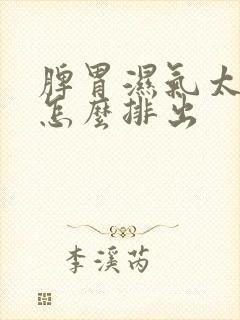 脾胃濕氣太
怎麼排出
李溪芮